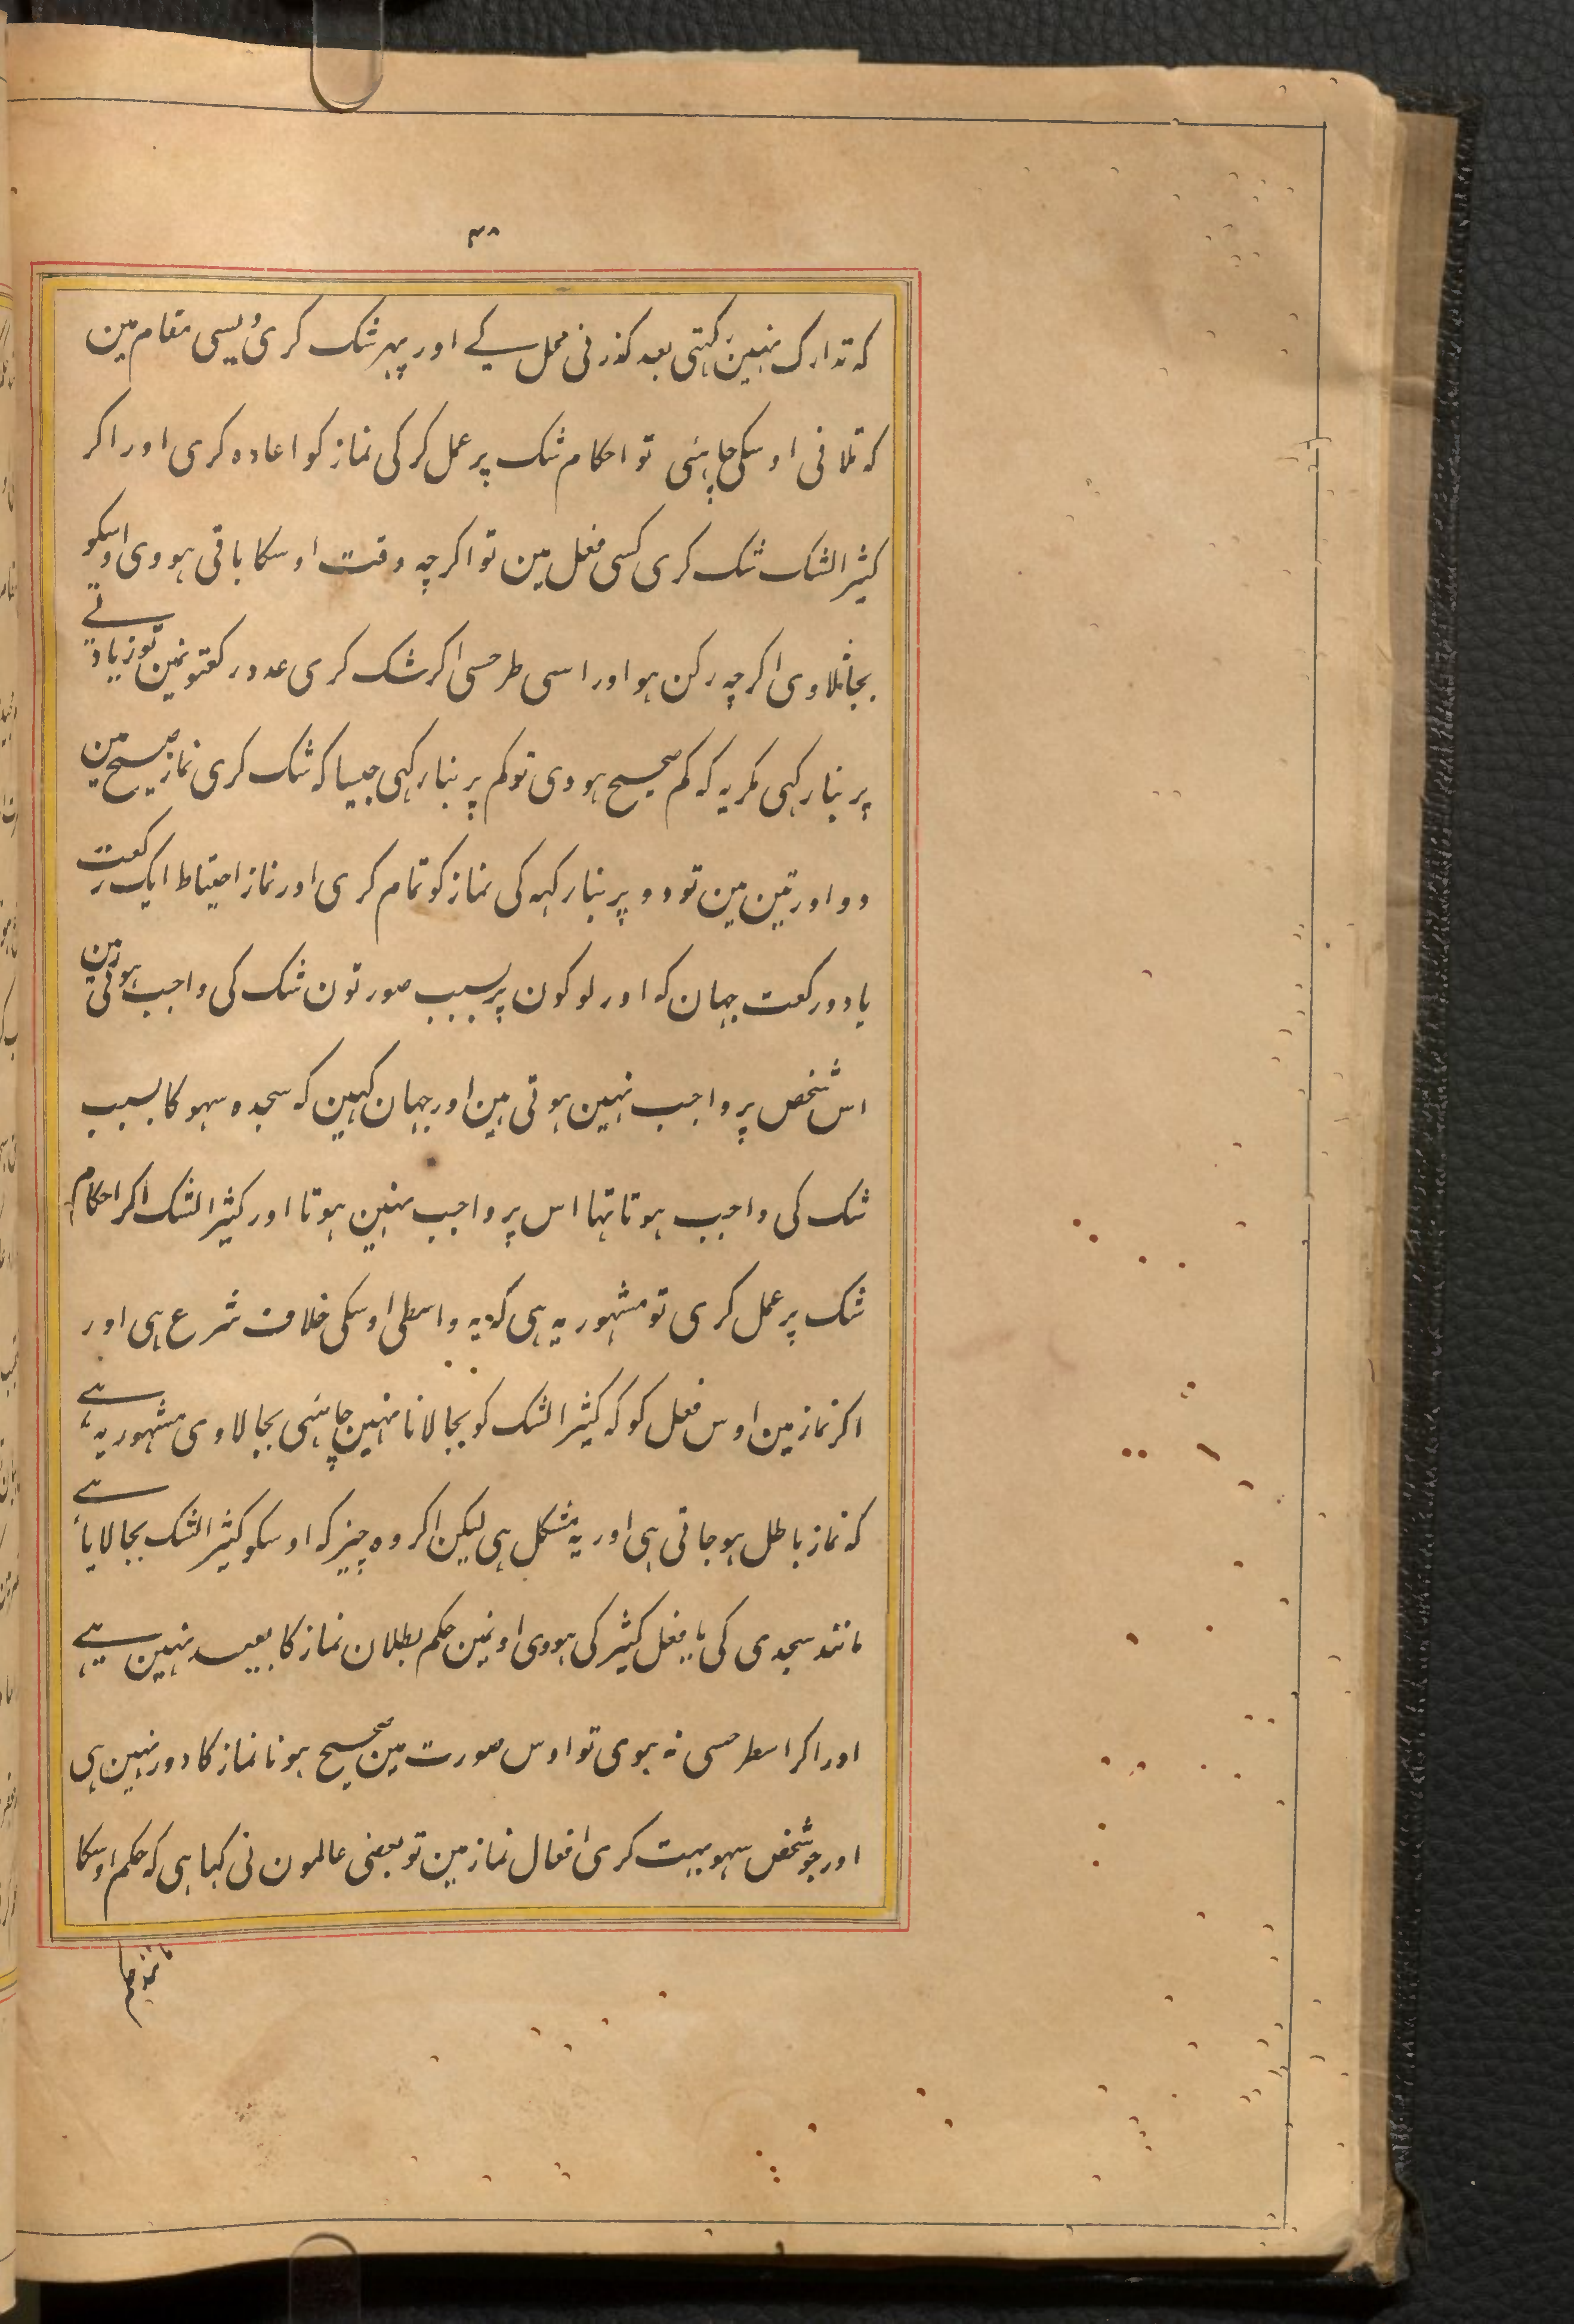 ۳۸
کہ تدارک نہین رکہتی بعد کذرنی محل کے اور پہر شک کری ویسی مقام مین
کہ تلافی اوسکی چاہئی تو احکام شک پر عمل کر کی نماز کو اعادہ کری اور اکر
کثیر الشک شک کری کسی فعل مین تو اکرچہ وقت اوسکا باقی ہووی اوسکو
بجانلاوی اکرچہ رکن ہو اور اسی طرحسی اکر شک کری عدد رکعتونمین تو زیادتے
پر بنا رکہی مکر یہ کہ کم صحیح ہووی تو کم پر بنا رکہی جیسا کہ شک کری نماز صبح مین
دو اور تین مین تو دو پر بنا رکہہ کی نماز کو تمام کری اور نماز احتیاط ایک رکعت
یا دو رکعت جہان کہ اور لوکون پر بسبب صورتون شک کی واجب ہوتی ہین
اس شخص پر واجب نہین ہوتی ہین اور جہان کہین کہ سجدہ سہو کا بسبب
شک کی واجب ہوتا تہا اس پر واجب نہین ہوتا اور کثیر الشک اکر احکام
شک پر عمل کری تو مشہور یہ ہی کہ یہ واسطی اوسکی خلاف شرع ہی اور
اکر نماز مین اوس فعل کو کہ کثیر الشک کو بجا لانا نہین چاہئی بجا لاوی مشہور یہ ہے
کہ نماز باطل ہو جاتی ہی اور یہ مشکل ہی لیکن اکر وہ چیز کہ اوسکو کثیر الشک بجا لایا ہے
مانند سجدی کی یا فعل کثیر کی ہووی اونمین حکم بطلان نماز کا بعید نہین ہے
اور اکر اسطرحسی نہ ہوی تو اوس صورت مین صحیح ہونا نماز کا دور نہین ہی
اور جو شخص سہو بہت کری افعال نماز مین تو بعضی عالمون نی کہا ہی کہ حکم اوسکا
مانند حکم